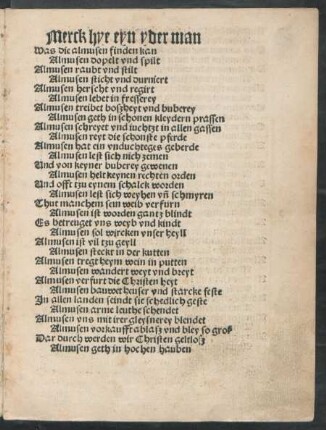 Merck hye eyn yder man
Was die almusen finden kan
Almusen dopelt vnd spilt
Almusen raubt vnd stilt
Almusen sticht vnd durnirt
Almusen herscht vnd regirt
Almusen lebet in fresserey
Almusen treibet boszheyt vnd buberey
Almusen geth in schonen kleydern prassen
Almusen schreyet vnd iuchtzt in allen gassen
Almusen reyt die schonste pferde
Almusen hat ein vnduchtiges geberde
Almusen lest sich nich zemen
Vnd von keyner buberey gewenen
Almusen helt keynen rechten orden
Vnd offt tzu eynem schalck worden
Almusen lest sich weyhen vñ schmyren
Thut manchem sein weib verfurn
Almusen ist worden gantz blindt
Es betreuget vns weyb vnd kindt
Almusen sol wircken vnser heyll
Almusen ist vil tzu geyll
Almusen steckt in der kutten
Almusen tregt heym wein in putten
Almusen wandert weyt vnd breyt
Almusen verfurt die Christen heyt
Almusen bauwet heuser vnd starcke feste
In allen landen seindt sie schedlich geste
Almusen arme leuthe schendet
Almusen vns mit irer gleysnerey blendet
Almusen vorkaufft ablasz vnd bley so grosz
Dar durch werden wir Christen geltlosz
Almusen geth in hochen hauben